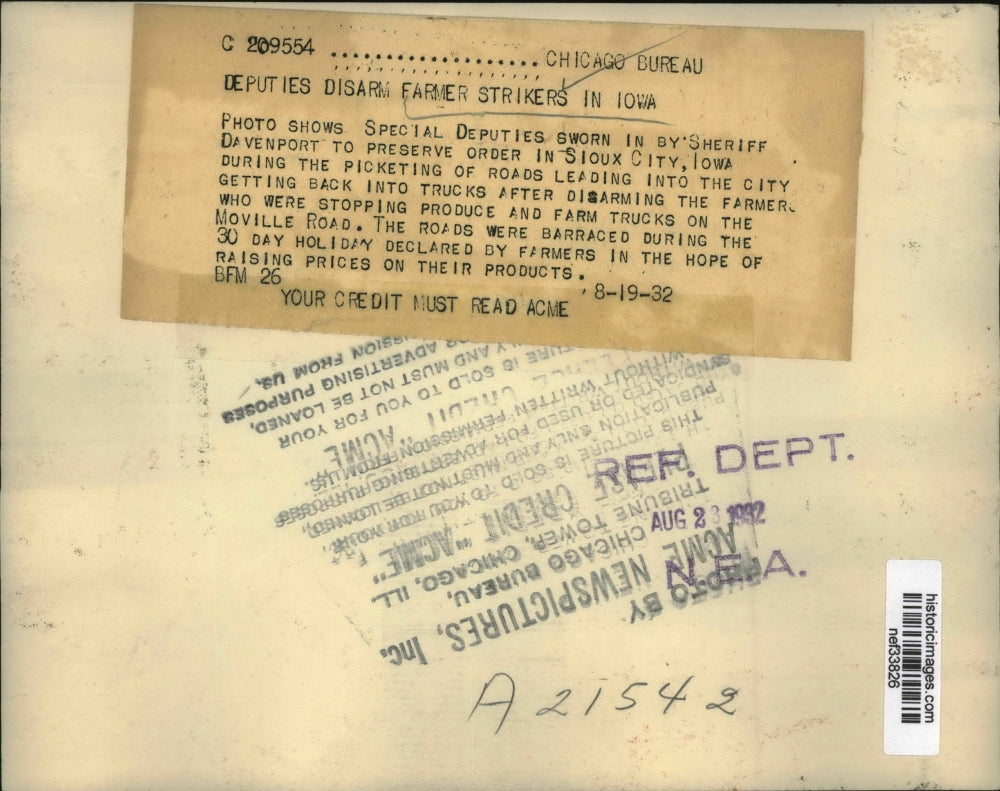 C 209554 .................... CHICAGO BUREAU
DEPUTIES DISARM FARMER STRIKERS IN IOWA
PHOTO SHOWS SPECIAL DEPUTIES SWORN IN BY SHERIFF
DAVENPORT TO PRESERVE ORDER IN SIOUX CITY, IOWA
DURING THE PICKETING OF ROADS LEADING INTO THE CITY
GETTING BACK INTO TRUCKS AFTER DISARMING THE FARMERS
WHO WERE STOPPING PRODUCE AND FARM TRUCKS ON THE
MOVILLE ROAD. THE ROADS WERE BARRACED DURING THE
30 DAY HOLIDAY DECLARED BY FARMERS IN THE HOPE OF
RAISING PRICES ON THEIR PRODUCTS.
BFM 26 8-19-32
YOUR CREDIT MUST READ ACME
REF. DEPT.
AUG 23 1932
N.E.A.
PHOTO BY
ACME NEWSPICTURES, Inc.
CHICAGO BUREAU,
TRIBUNE TOWER, CHICAGO, ILL.
CREDIT "ACME"
THIS PICTURE IS SOLD TO YOU FOR YOUR
PUBLICATION ONLY AND MUST NOT BE LOANED,
SYNDICATED OR USED FOR ADVERTISING PURPOSES
WITHOUT WRITTEN PERMISSION FROM US.
A 21542
historicimages.com
nef33826